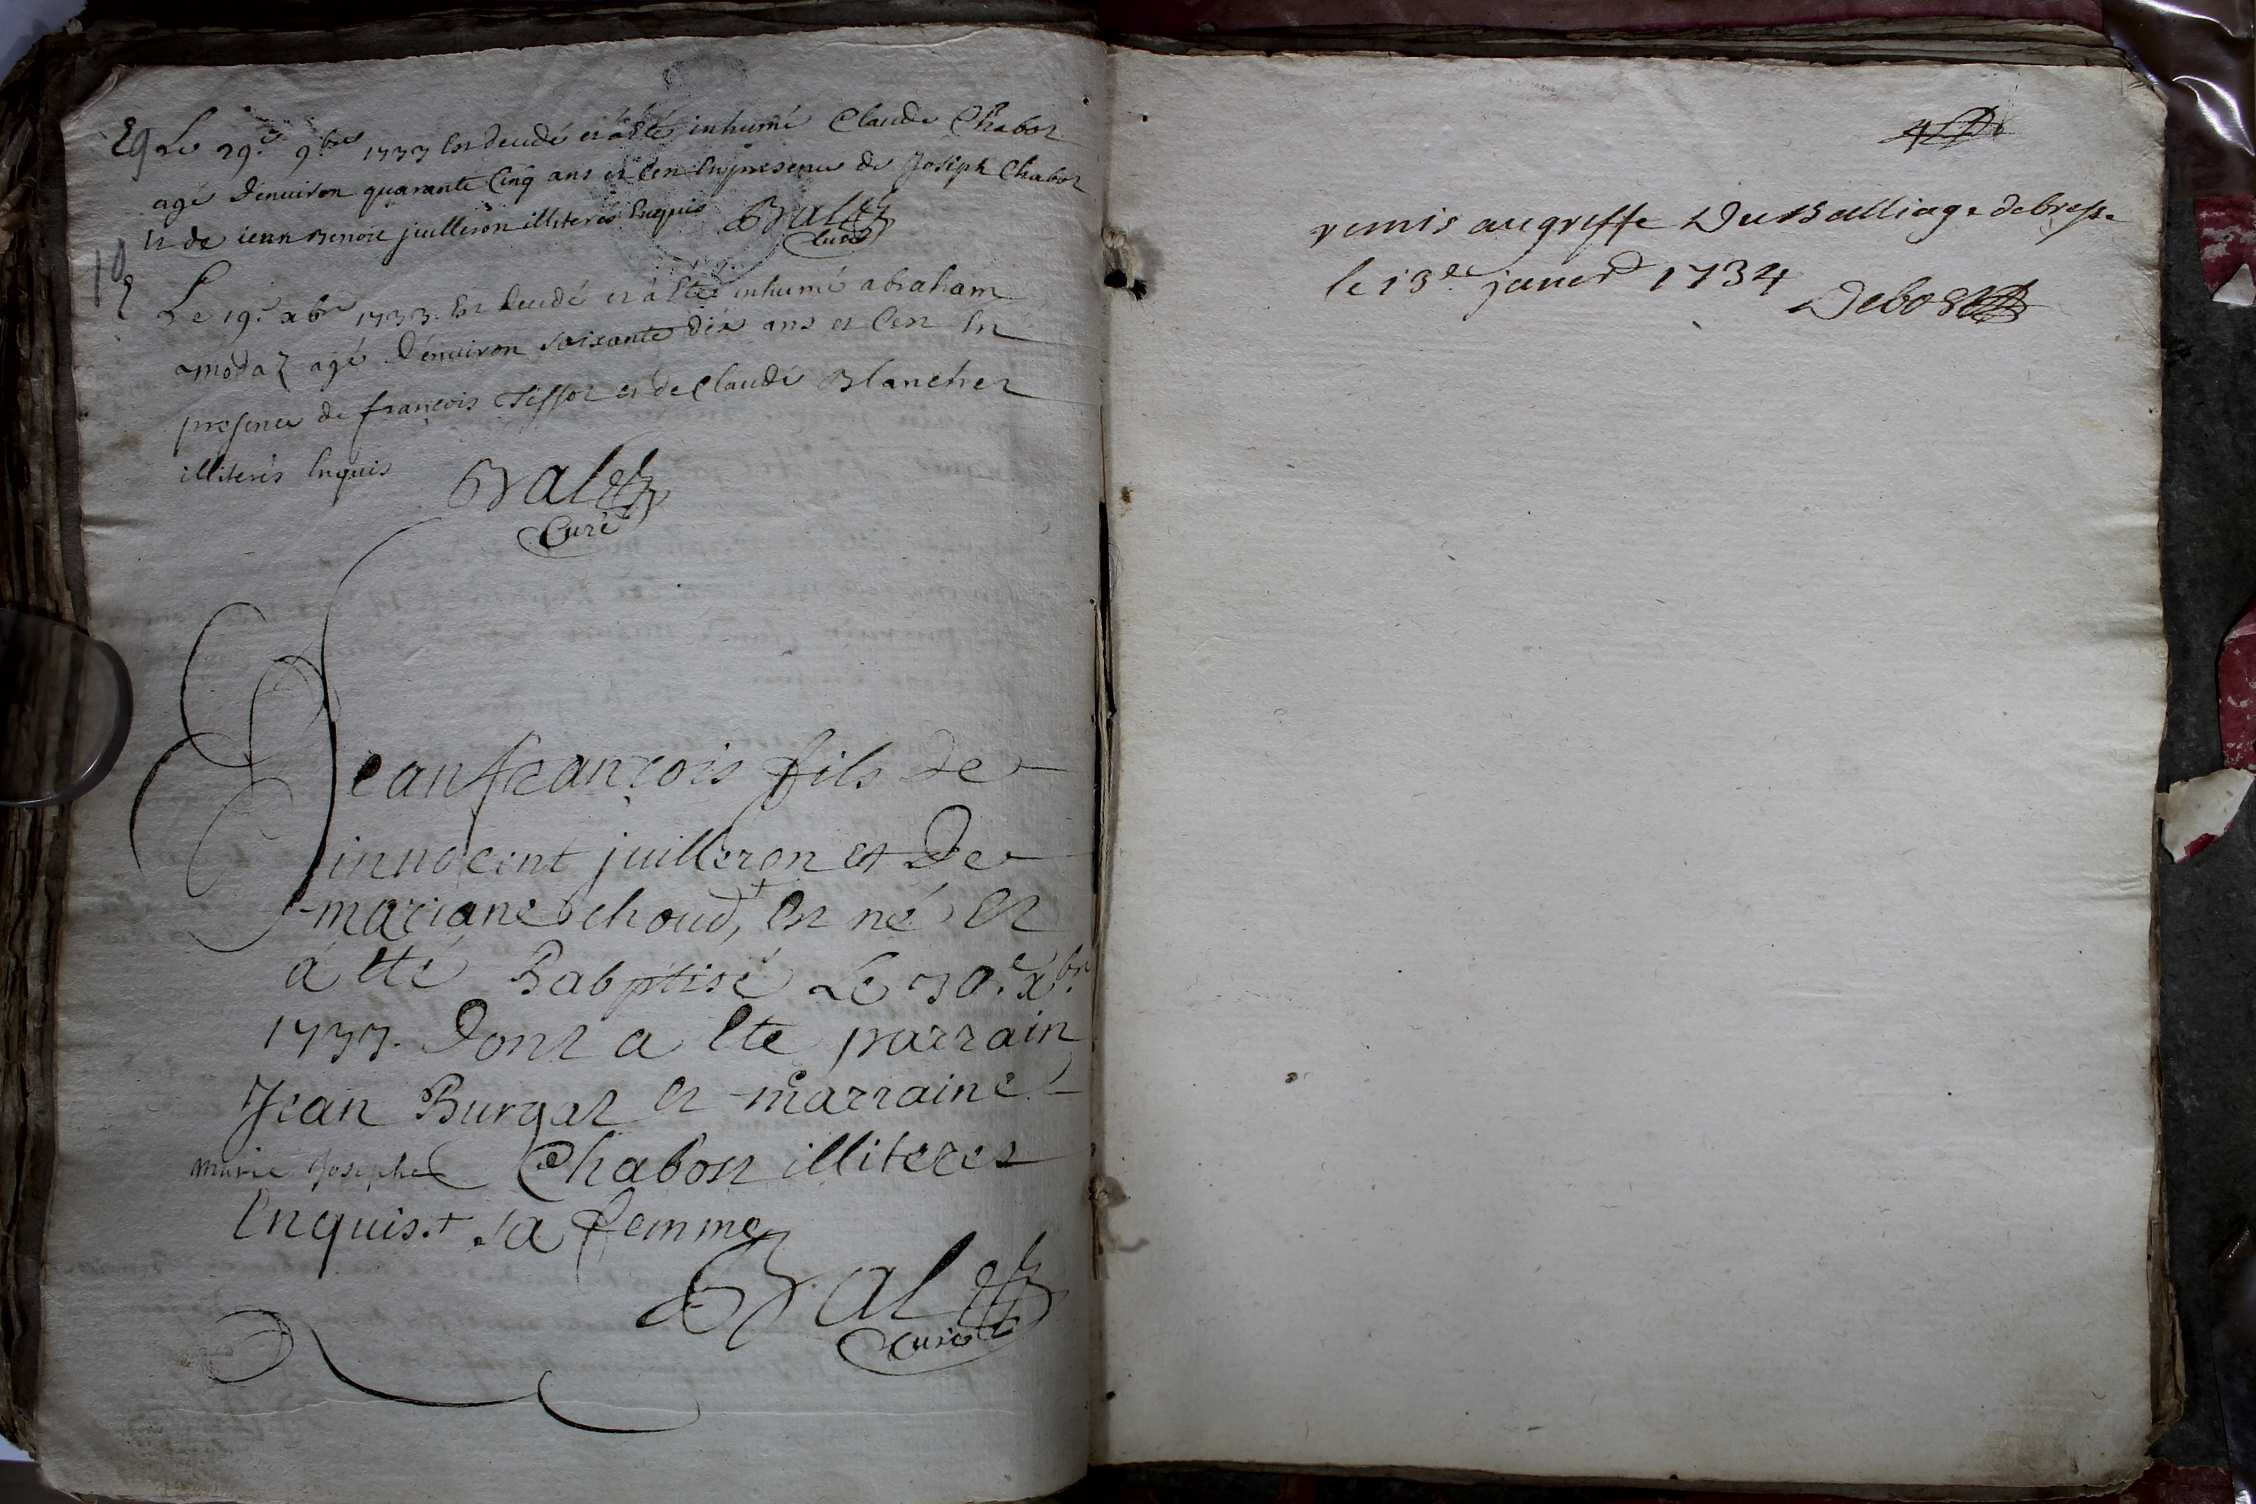 29 Le 29.e 9bre 1733 Est decedé et a Esté inhumé Claude Chabot
agé d'enuiron quarante Cinq ans et C'en En presence de Joseph Chabot
Et de iean Benoit juilleron illiterés Enquis Bal
Curé
Le 19.e xbre 1733. Est decedé et à Eté inhumé abraham
amodaz agé d'enuiron soixante dix ans et C'en En
presence de françois Tissot et de Claude Blanchet
illiterés Enquis Bal
Curé
Jean françois fils de
innocent juilleron et de
mariane choud, Est né Et
à Eté Babptisé Le 30.e xbre
1733. Dont a Eté parrain
Jean Burgat Et marraine
marie Josephe Chabot illiteres
Enquis + sa femme
Bal
Curé
remis au greffe Du Balliage de bresse
le 13.e janer 1734
Debost